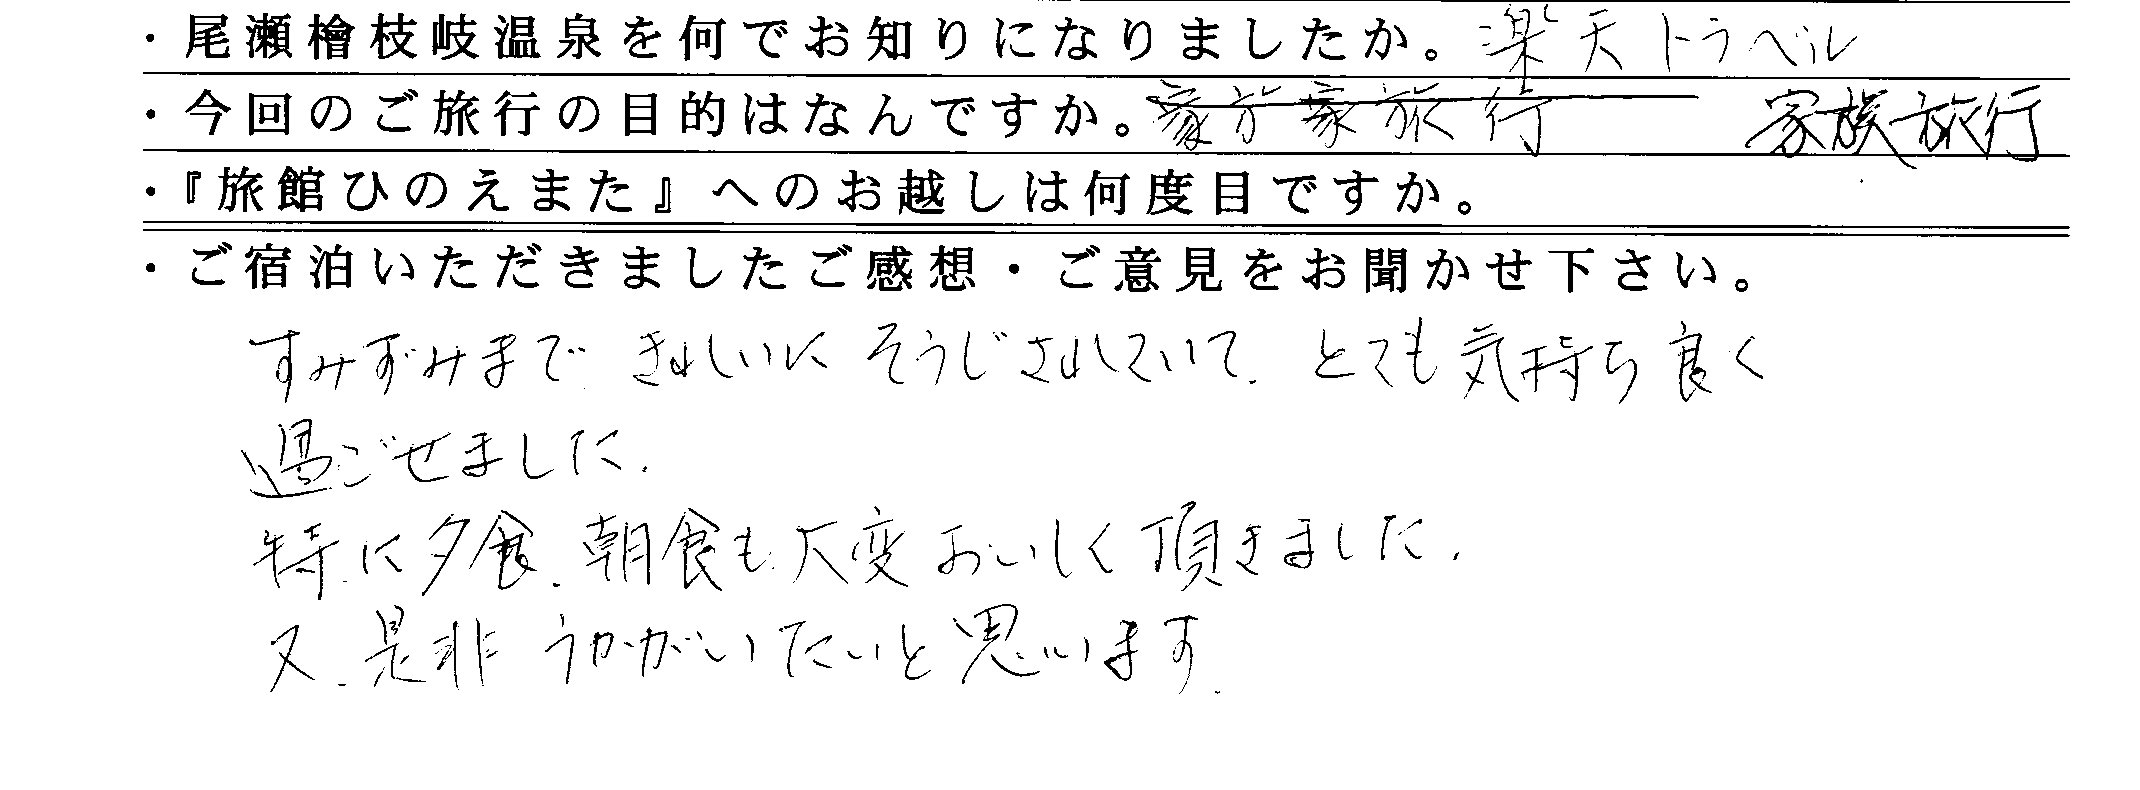 ・尾瀬檜枝岐温泉を何でお知りになりましたか。楽天トラベル
・今回のご旅行の目的はなんですか。家族旅行
・『旅館ひのえまた』へのお越しは何度目ですか。
・ご宿泊いただきましたご感想・ご意見をお聞かせ下さい。
すみずみまで、きれいにそうじされていて、とても気持ち良く
過ごせました。
特に夕食、朝食も大変おいしく頂きました。
又、是非うかがいたいと思います。